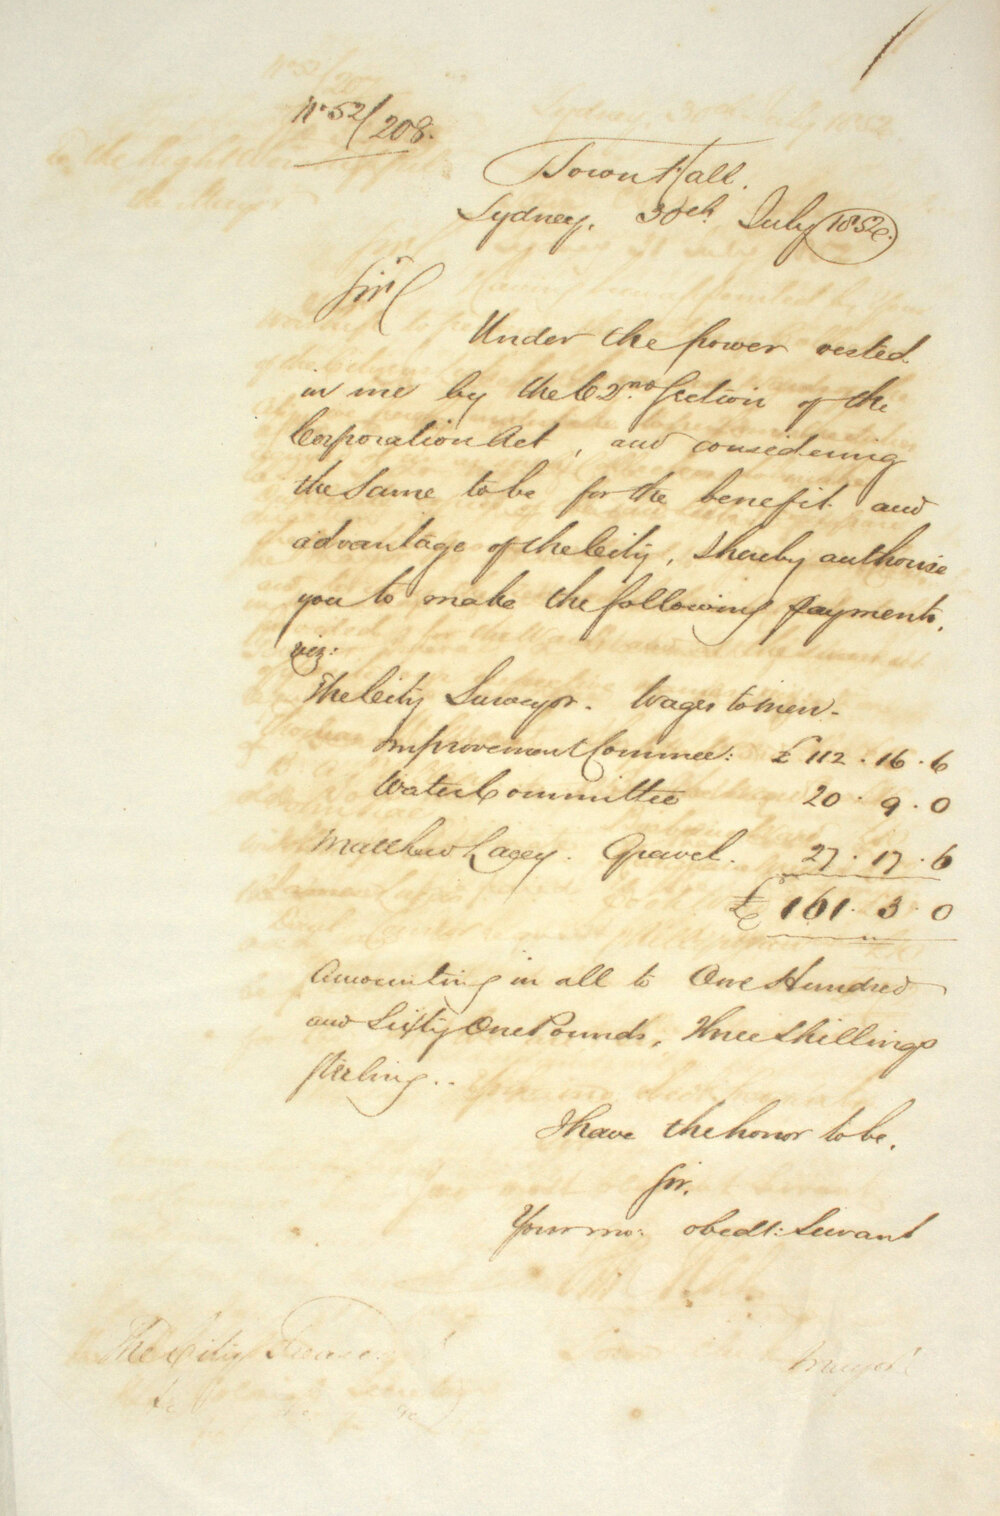 No 52/208.
Town Hall.
Sydney, 30th July 1852.
Sir
Under the power vested
in me by the 62nd Section of the
Corporation Act, and considering
the same to be for the benefit and
advantage of the City, I hereby authorise
you to make the following payments,
viz:
The City Surveyor. Wages to men.
Improvement Commee: £112.16.6
Water Committee 20.9.0
Matthew Lacey. Gravel. 27.17.6
£161.3.0
Amounting in all to One Hundred
and Sixty One Pounds, Three Shillings
Sterling..
I have the honor to be,
Sir,
Your mo: obedt: Servant
Mayor
The City Treasr.
&c &c &c